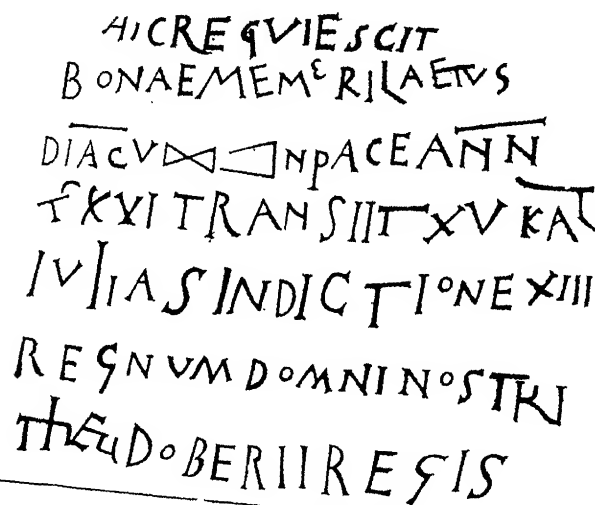 HICREQVIESCIT
BONAEMEMERILAETVS
DIACV NPACEANN
XXVITRANSIITXVKAL
IVLIASINDICTIONEXIII
REGNVMDOMNINOSTRI
THEUDOBERIIREGIS